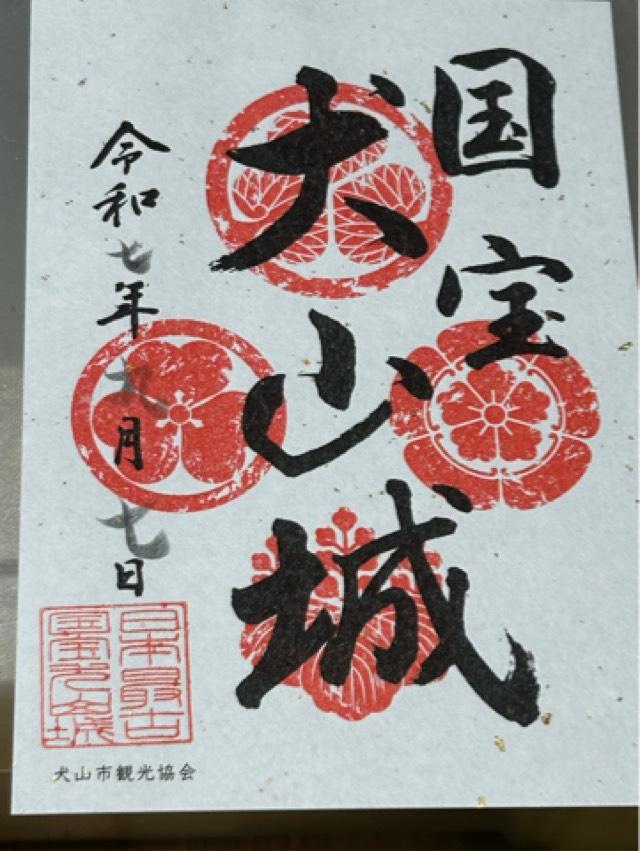 国宝
犬山城
令和七年九月七日
日本最古
国宝犬山城
犬山市観光協会